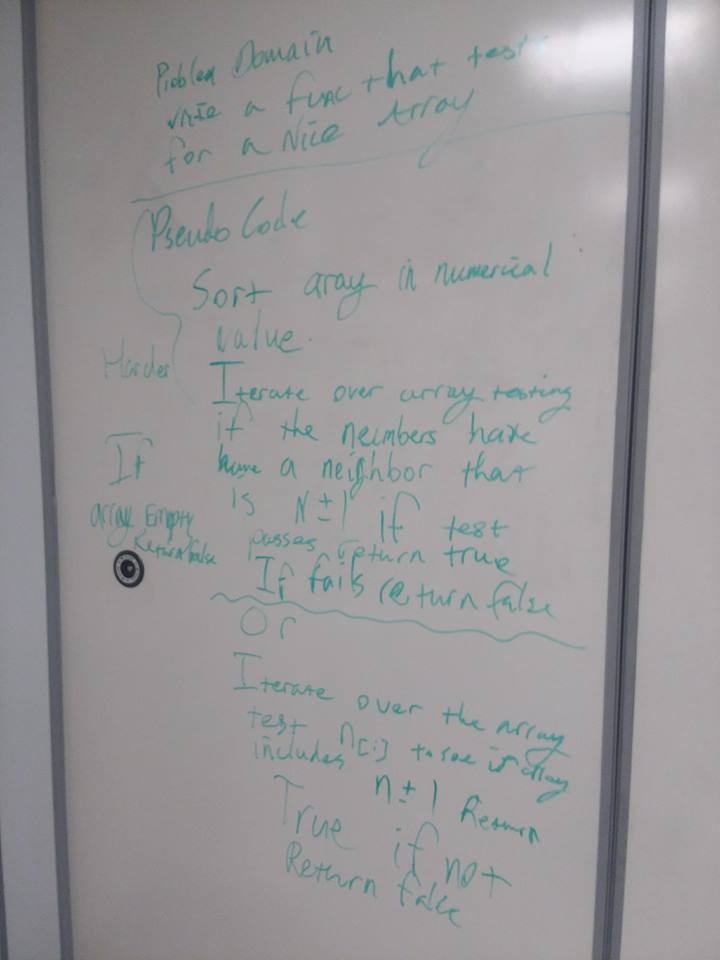 Problem Domain
write a func that test
for a Nice Array
Pseudo Code
Sort aray in numerical
value.
Harder
Iterate over array testing
if the neimbers have
have a neighbor that
is N±1 if test
passes return true
If fails return false
If
array Empty
Return false
Or
Iterate over the array
test n[i] to see if array
includes n±1 Return
True if not
Return false